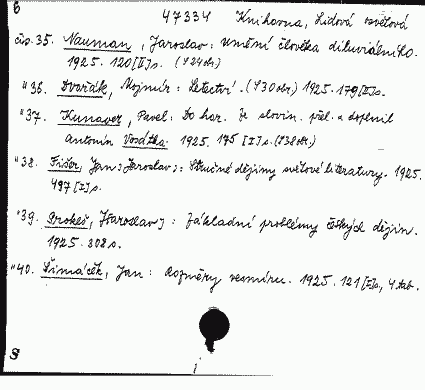 6
47334 Knihovna, Lidová světová
čís. 35. Nauman, Jaroslav: Umění člověka diluviálního.
1925. 120 [I] s. (124 obr.)
" 36. Dvořák, Mojmír: Letectví. (130 obr.) 1925. 179 [I] s.
" 37. Kunaver, Pavel: Do hor. Ze slovin. přel. a doplnil
Antonín Vosátka. 1925. 175 [I] s. (38 obr.)
" 38. Fišer, Jan [Jaroslav]: Stručné dějiny světové literatury. 1925.
497 [I] s.
" 39. Prokeš, J[aroslav]: Základní problémy českých dějin.
1925. 208 s.
" 40. Šimáček, Jan: Rozměry vesmíru. 1925. 121 [I] s, 4 tab.